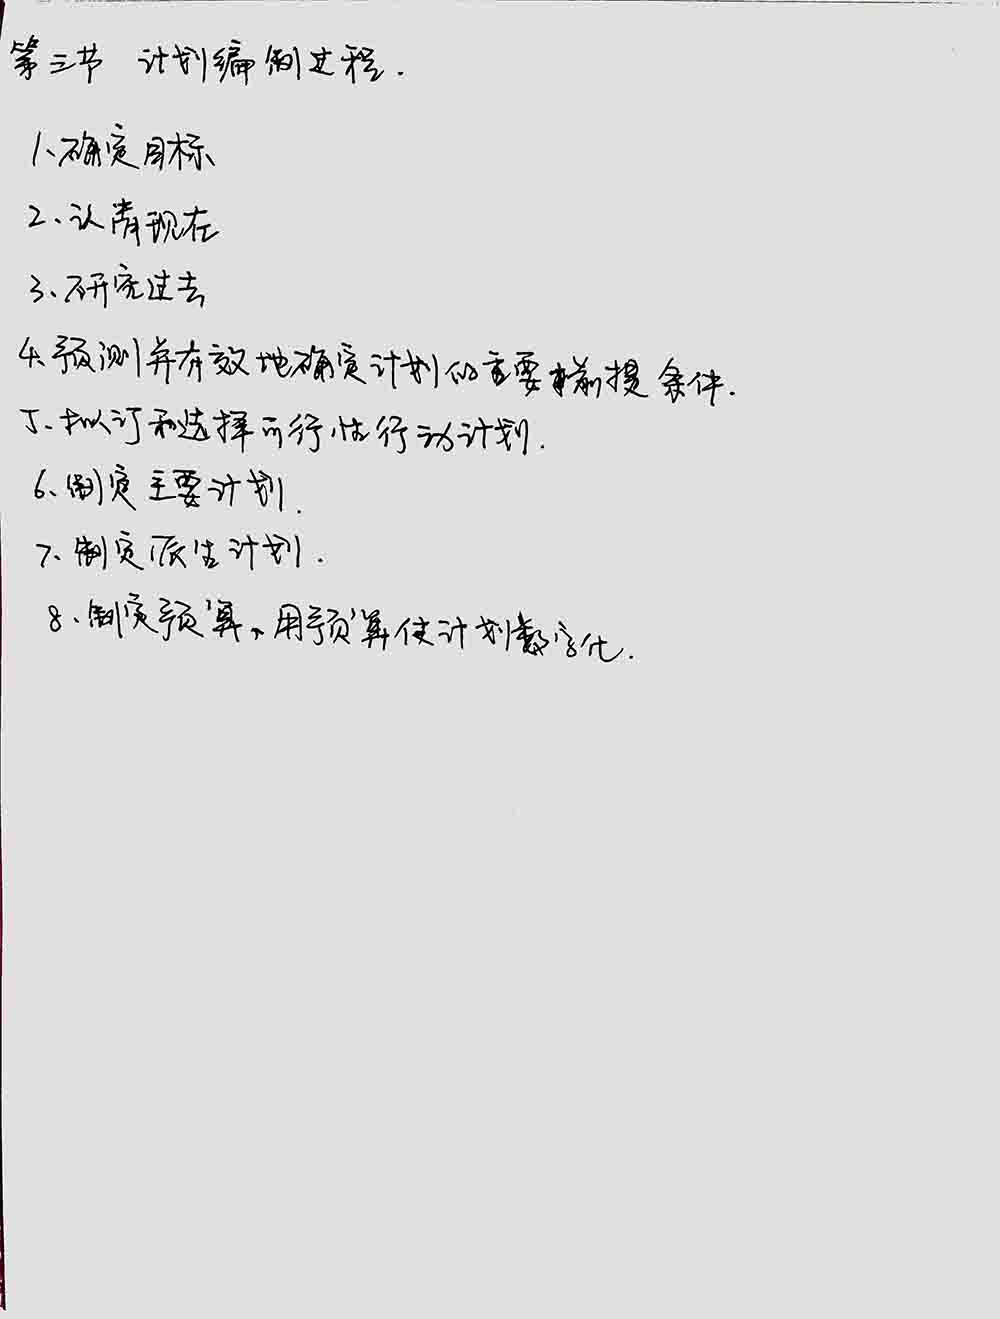 第三节 计划编制过程.
1、确定目标
2、认清现在
3、研究过去
4、预测并有效地确定计划的重要前提条件.
5、拟订和选择可行性行动计划.
6、制定主要计划.
7、制定派生计划.
8、制定预算、用预算使计划数字化.